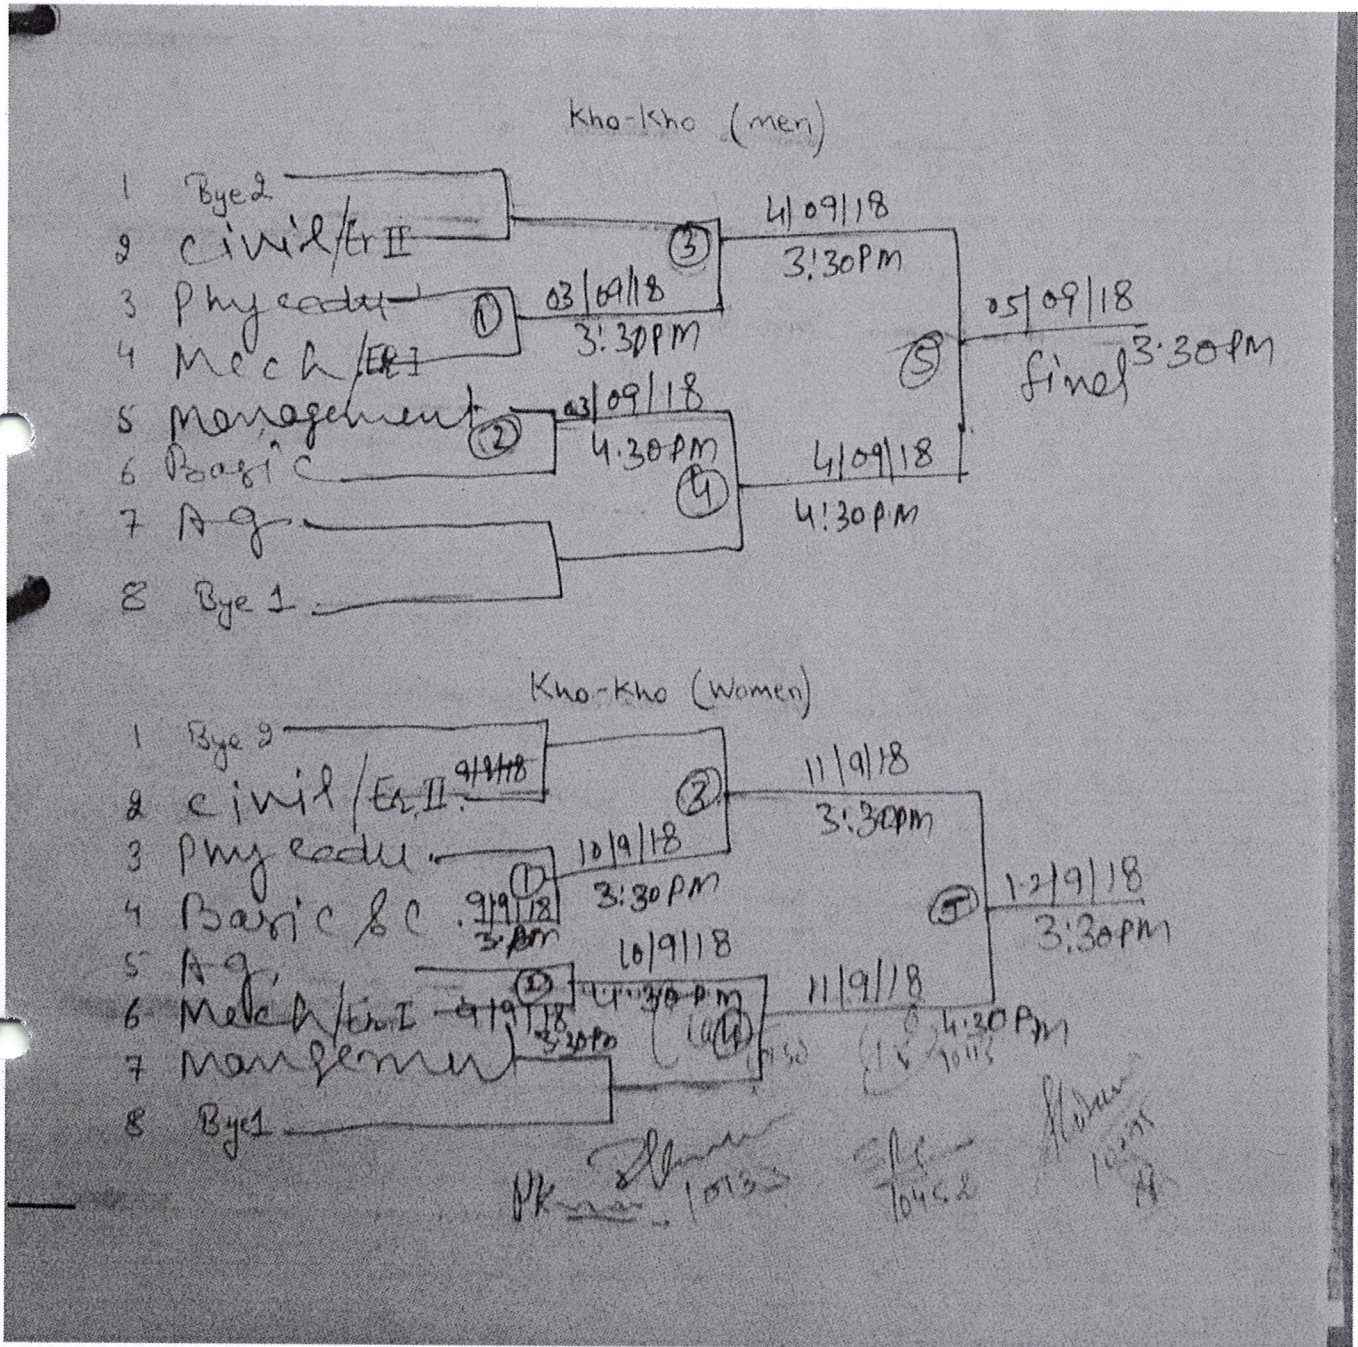 Kho-Kho (men)
1 Bye 2
2 Civil/Er II
3 Phy eedu
4 Mech/ER I
5 Management
6 Basic
7 Ag.
8 Bye 1
① 03/09/18
3:30PM
② 03/09/18
4.30PM
③ 4/09/18
3:30PM
④ 4/09/18
4:30P.M
⑤ 05/09/18
final 3.30PM
Kho-Kho (Women)
1 Bye 2
2 Civil/Er. II. 9/9/18
3 Phy eedu.
4 Basic SC. 9/9/18
5 Ag,
6 Mech/Er I 9/9/18
3:30PM
7 Mangemen
8 Bye1
① 10/9/18
3:30PM
② 10/9/18
4:30PM
③ 11/9/18
3:30pm
④ 11/9/18
4:30PM
⑤ 12/9/18
3:30PM
10133
10452